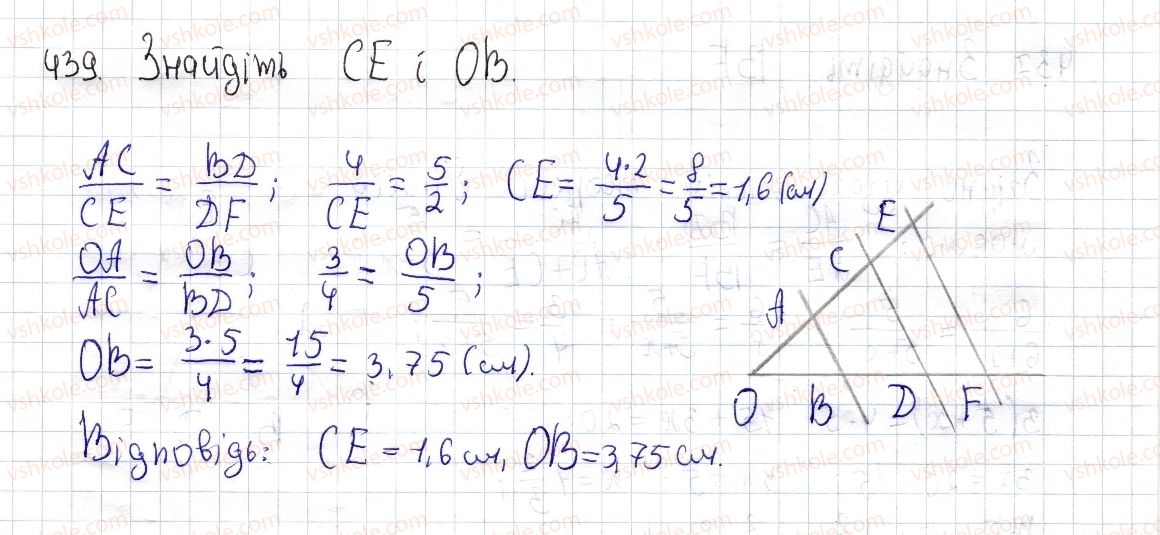 439. Знайдіть CE і OB.
AC/CE = BD/DF; 4/CE = 5/2; CE = 4·2/5 = 8/5 = 1,6 (см)
OA/AC = OB/BD; 3/4 = OB/5;
OB = 3·5/4 = 15/4 = 3,75 (см).
Відповідь: CE = 1,6 см, OB = 3,75 см.
E
C
A
O B D F
vshkole.com